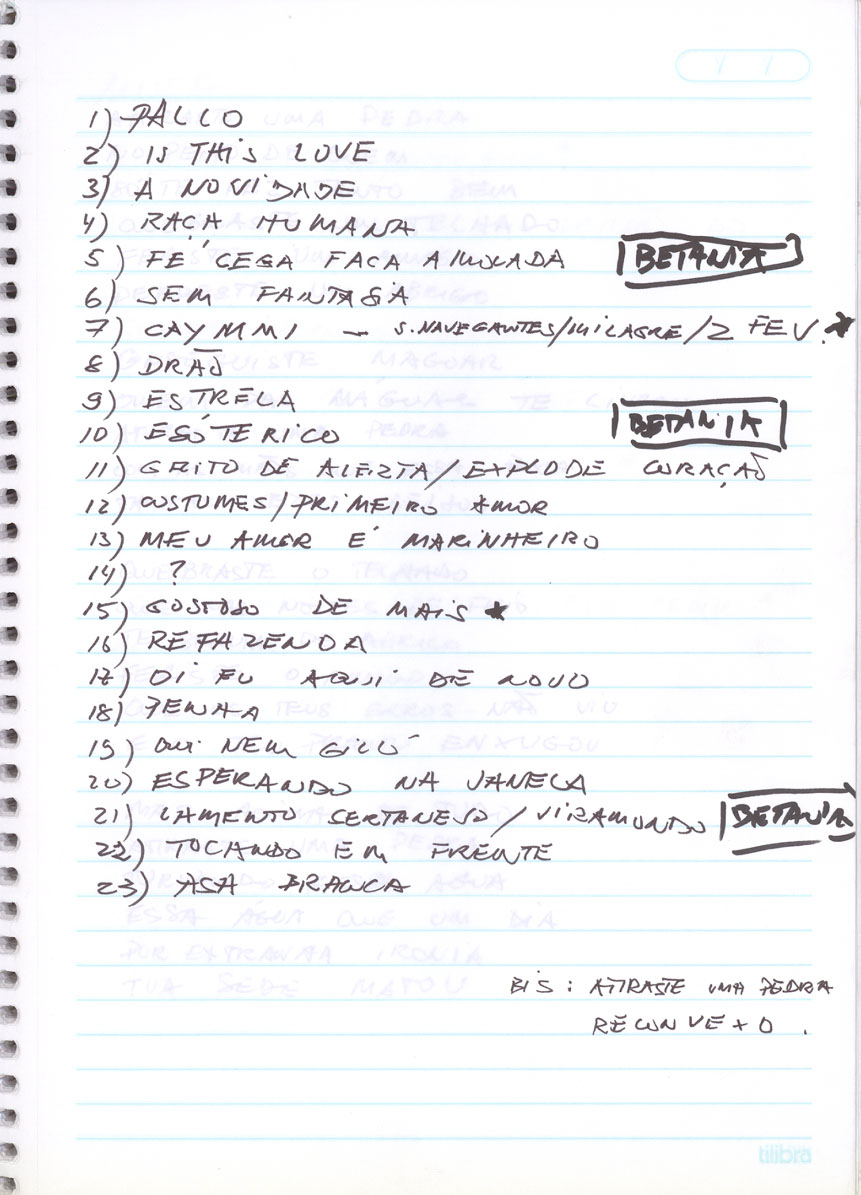 1) PALCO
2) IS THIS LOVE
3) A NOVIDADE
4) RAÇA HUMANA
5) FÉ CEGA FACA AMOLADA BETANIA
6) SEM FANTASIA
7) CAYMMI – S. NAVEGANTES/MILAGRE/2 FEV. *
8) DRÃO
9) ESTRELA
10) ESÓTERICO BETANIA
11) GRITO DE ALERTA/EXPLODE CORAÇÃO
12) COSTUMES/PRIMEIRO AMOR
13) MEU AMOR É MARINHEIRO
14) ?
15) GOSTOSO DE MAIS *
16) REFAZENDA
17) OI EU AQUI DE NOVO
18) PENHA
19) QUI NEM GILÓ
20) ESPERANDO NA JANELA
21) LAMENTO SERTANEJO/VIRAMUNDO BETANIA
22) TOCANDO EM FRENTE
23) ASA BRANCA
ESSA ÁGUA QUE UM DIA
POR EXTRANHA IRONIA
TUA SEDE MATOU
BIS: ATIRASTE UMA PEDRA
RECONVEXO.
tilibra